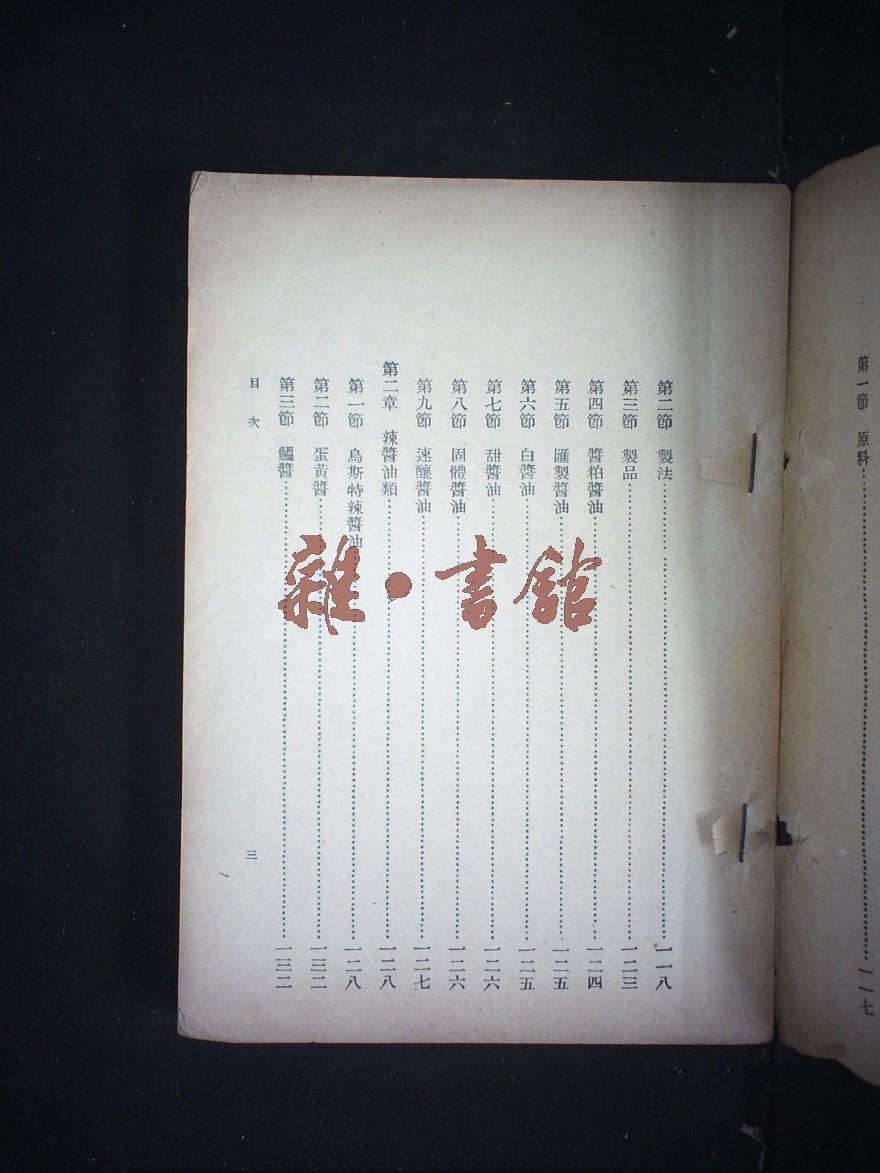 第一節 原料……一一七
第二節 製法……一一八
第三節 製品……一二三
第四節 醬粕醬油……一二四
第五節 匯製醬油……一二五
第六節 白醬油……一二五
第七節 甜醬油……一二六
第八節 固體醬油……一二六
第九節 速釀醬油……一二七
第二章 辣醬油類……一二八
第一節 烏斯特辣醬油……一二八
第二節 蛋黃醬……一三二
第三節 鯷醬……一三二
目次 三
雜·書館